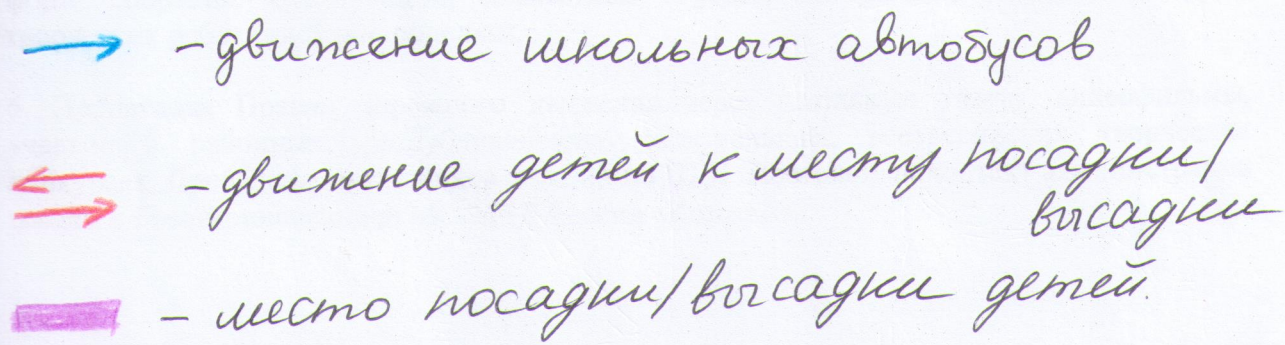 - движение школьных автобусов
- движение детей к месту посадки/
высадки
- место посадки/высадки детей.